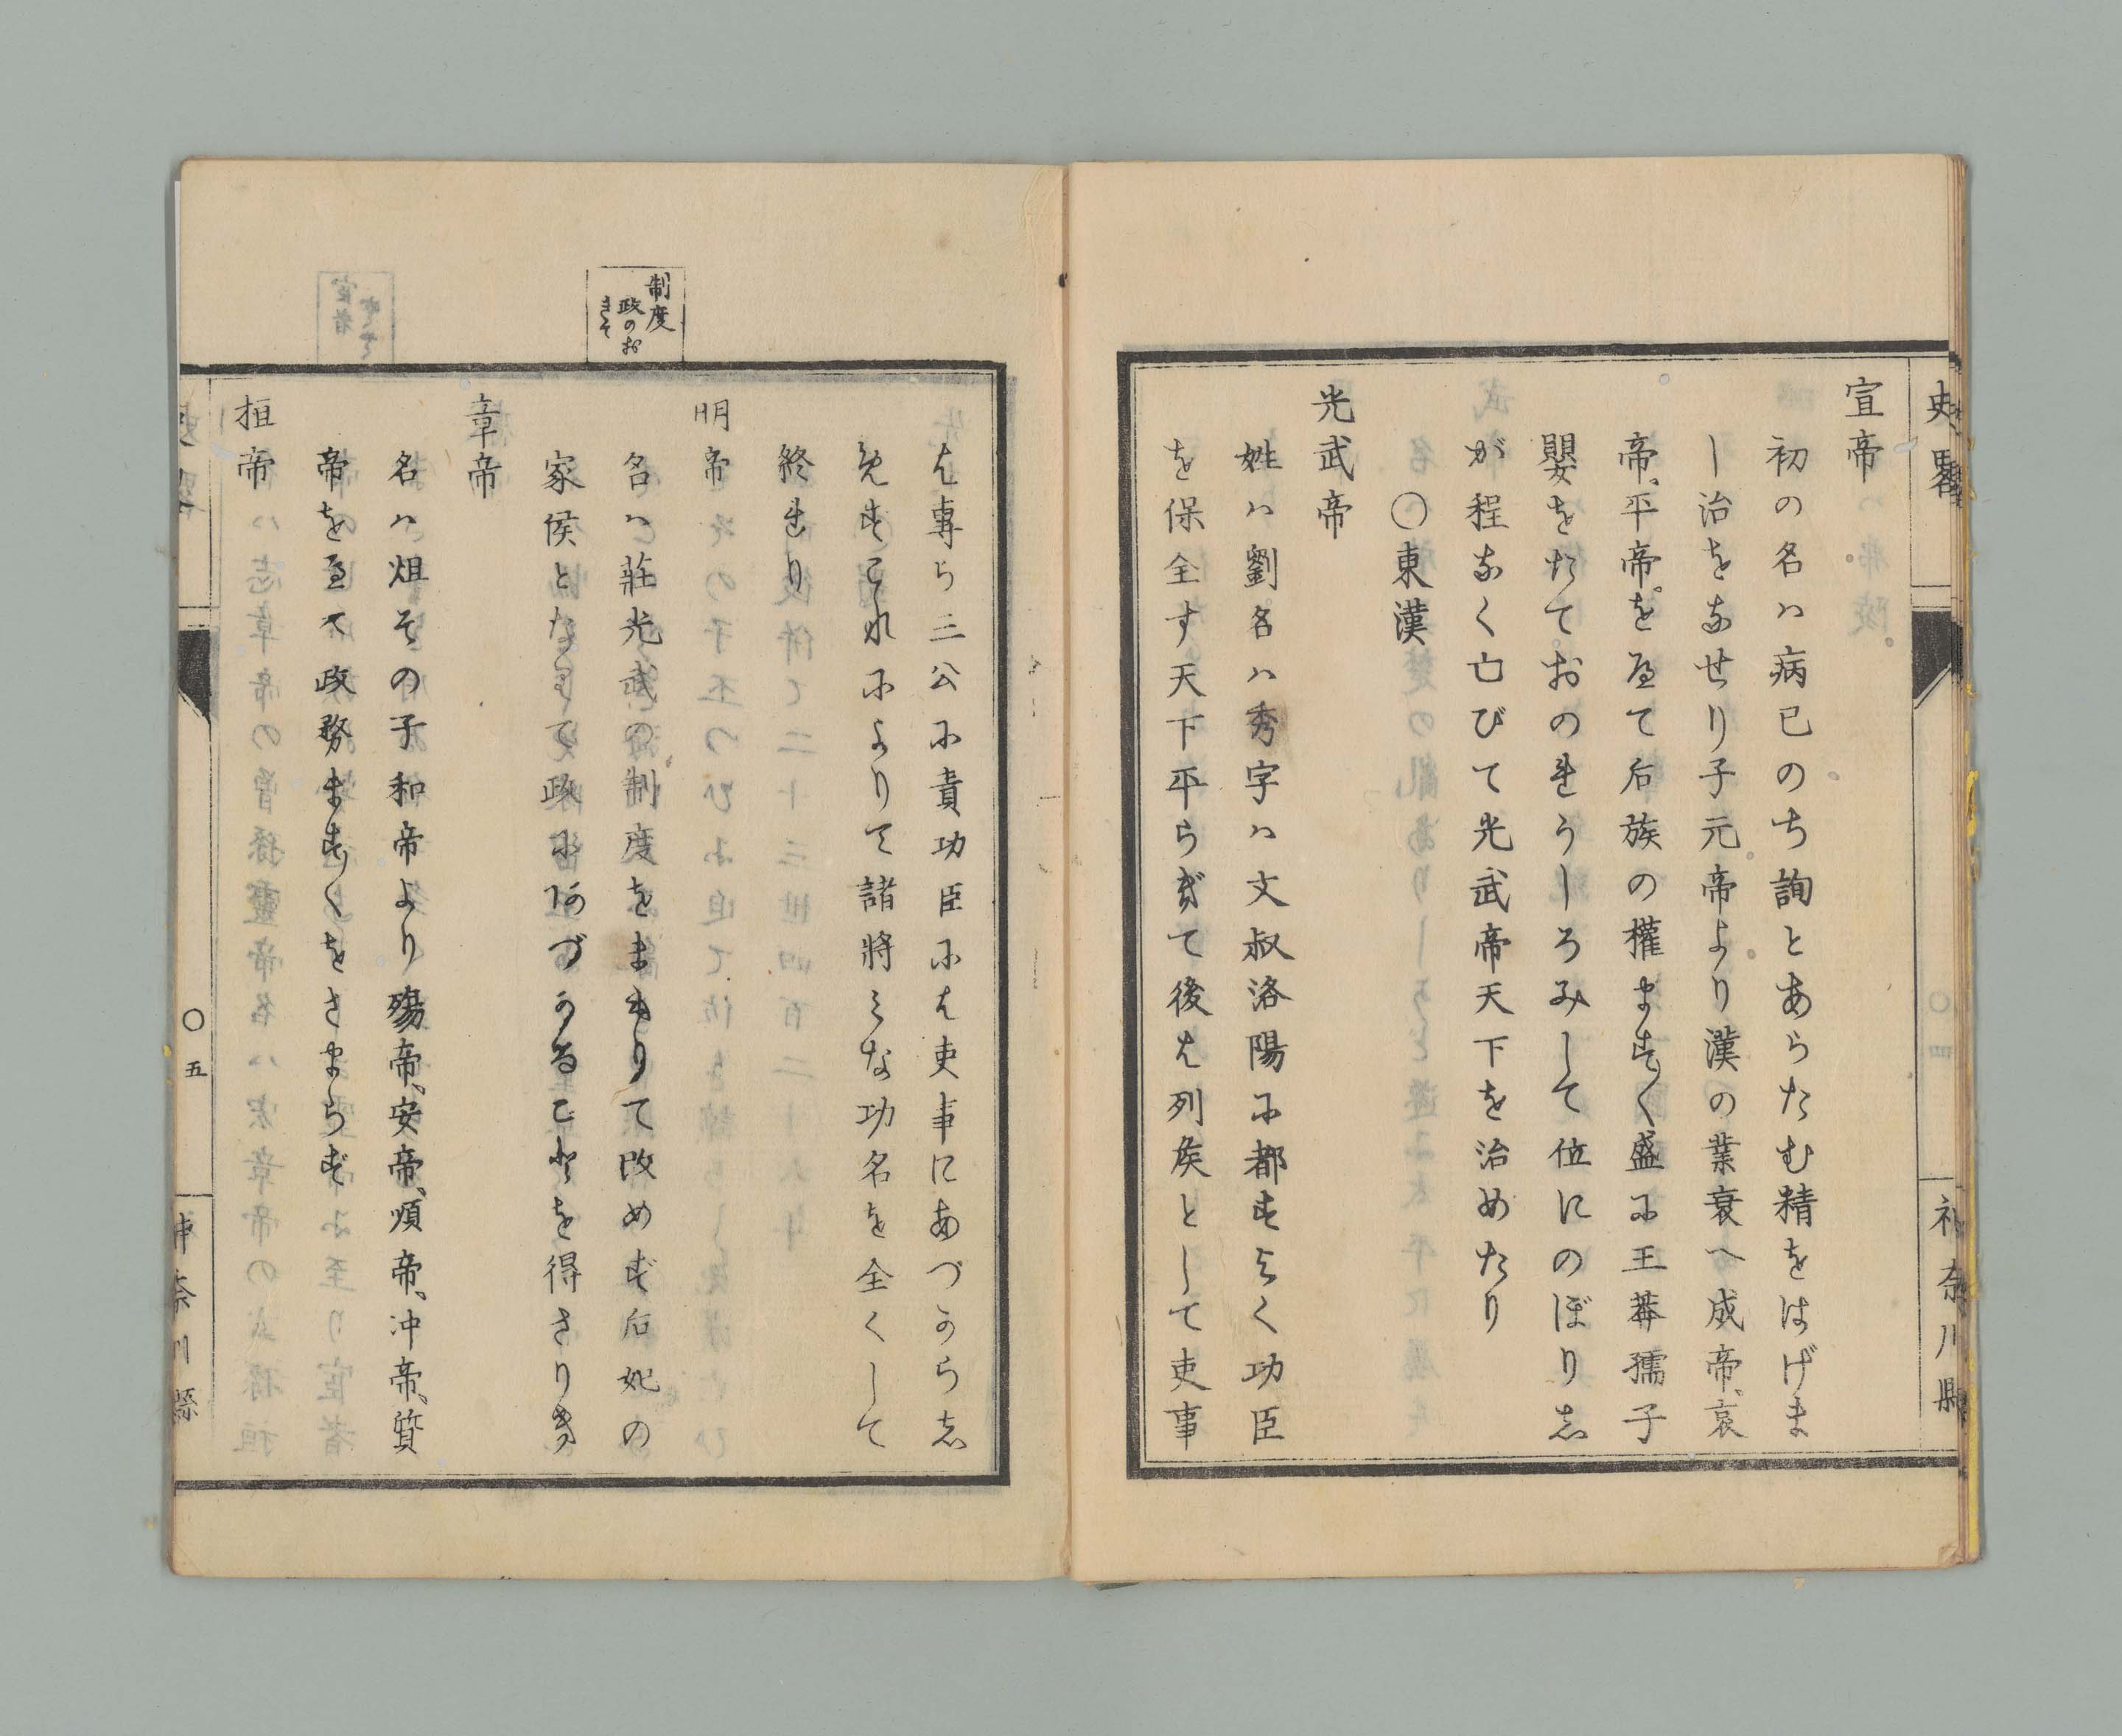 史略
神奈川縣
宣帝
初の名ハ病已のち詢とあらたむ精をはげま
し治をなせり子元帝より漢の業衰へ成帝、哀
帝、平帝。を歴て后族の權ますく盛に王莽孺子
嬰をたておのれうしろみして位にのぼりし
が程なく亡びて光武帝天下を治めたり
〇東漢
光武帝
姓ハ劉名ハ秀字ハ文叔洛陽に都すよく功臣
を保全す天下平らぎて後は列矦として吏事
制度
政のお
きて
は專ら三公に責功臣には吏事にあづからし
免すこれによりて諸將みな功名を全くして
終れり
明帝
名ハ莊光武の制度をまもりて改めず后妃の
家侯となりて政にあづかることを得さりき
章帝
名ハ炟その子和帝より殤帝、安帝、順帝、冲帝、質
帝を歴て政務ますくをさまらず
桓帝
史畧
〇五
神奈川縣